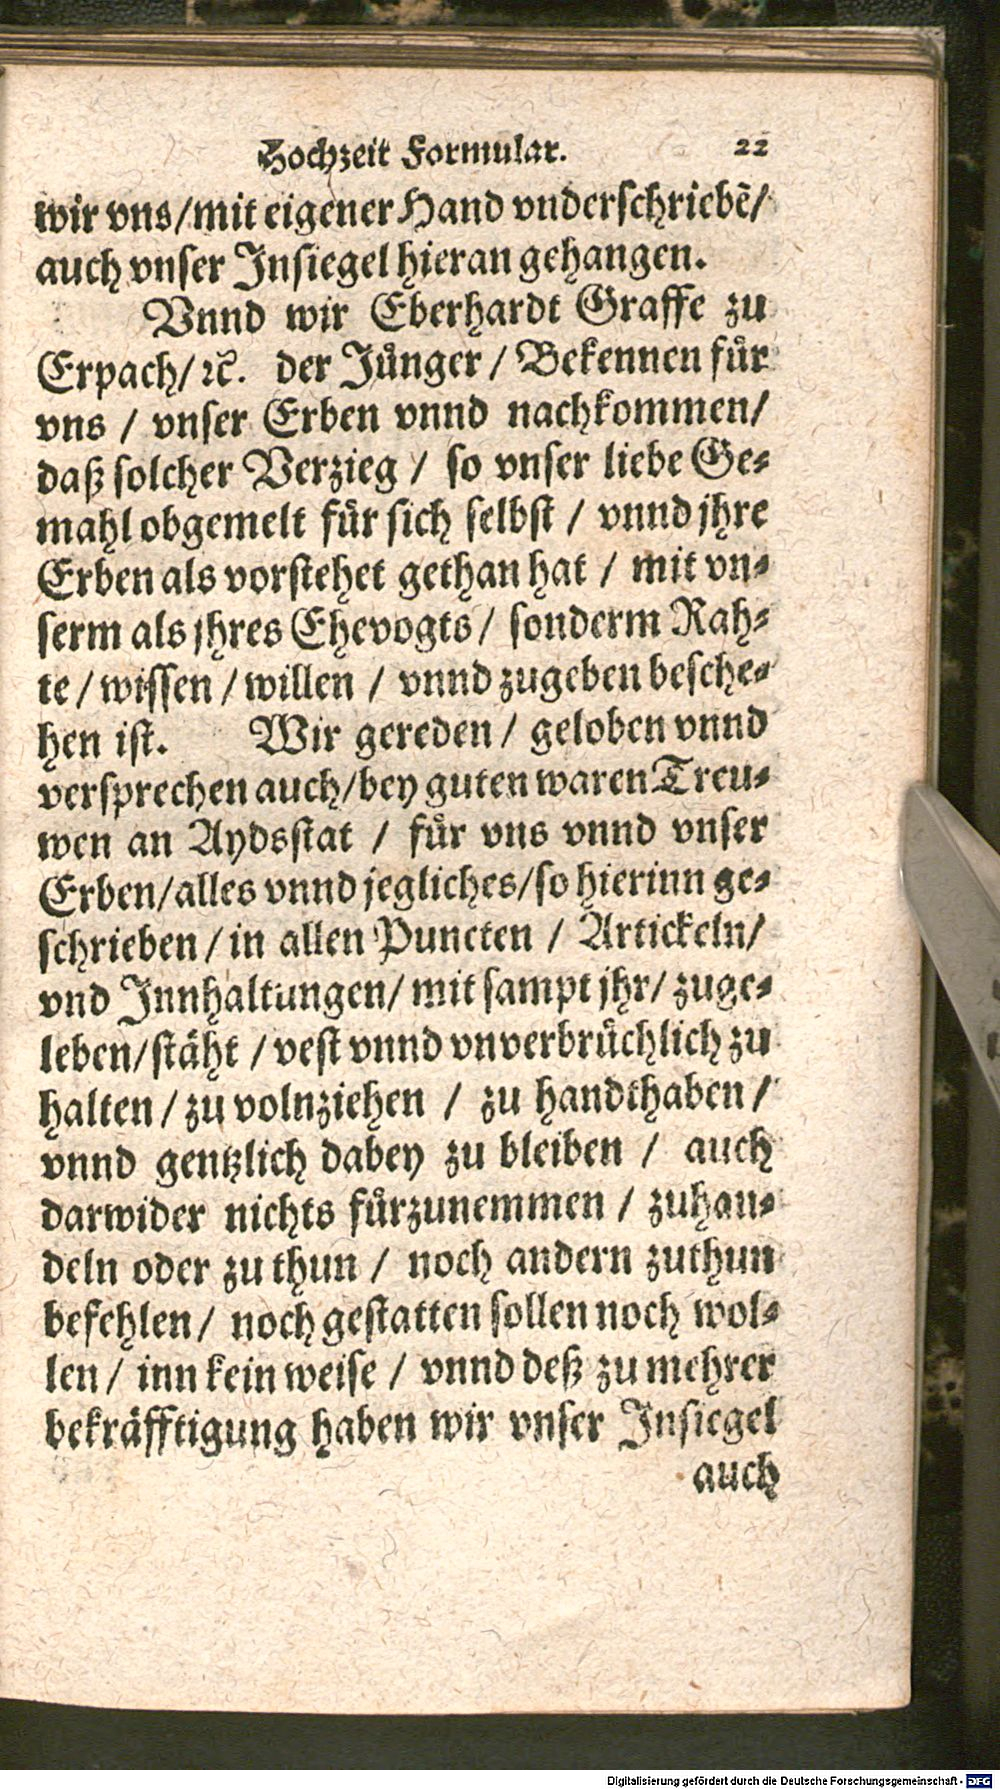 Hochzeit Formular. 22
wir vns/mit eigener Hand vnderschriebẽ/
auch vnser Insiegel hieran gehangen.
Vnnd wir Eberhardt Graffe zu
Erpach/ ꝛc̃. der Jůnger / Bekennen fůr
vns / vnser Erben vnnd nachkommen/
daß solcher Verzieg / so vnser liebe Ge⸗
mahl obgemelt fůr sich selbst / vnnd jhre
Erben als vorstehet gethan hat / mit vn⸗
serm als jhres Ehevogts / sonderm Rah⸗
te / wissen / willen / vnnd zugeben besche⸗
hen ist. Wir gereden / geloben vnnd
versprechen auch/bey guten waren Treu⸗
wen an Aydsstat / fůr vns vnnd vnser
Erben/alles vnnd jegliches/so hierinn ge⸗
schrieben / in allen Puncten / Artickeln/
vnd Innhaltungen/ mit sampt jhr/ zuge⸗
leben/stäht / vest vnnd vnverbrůchlich zu
halten / zu volnziehen / zu handthaben /
vnnd gentzlich dabey zu bleiben / auch
darwider nichts fůrzunemmen / zuhan⸗
deln oder zu thun / noch andern zuthun
befehlen / noch gestatten sollen noch wol⸗
len / inn kein weise / vnnd deß zu mehrer
bekräfftigung haben wir vnser Insiegel
auch
Digitalisierung gefördert durch die Deutsche Forschungsgemeinschaft - DFG